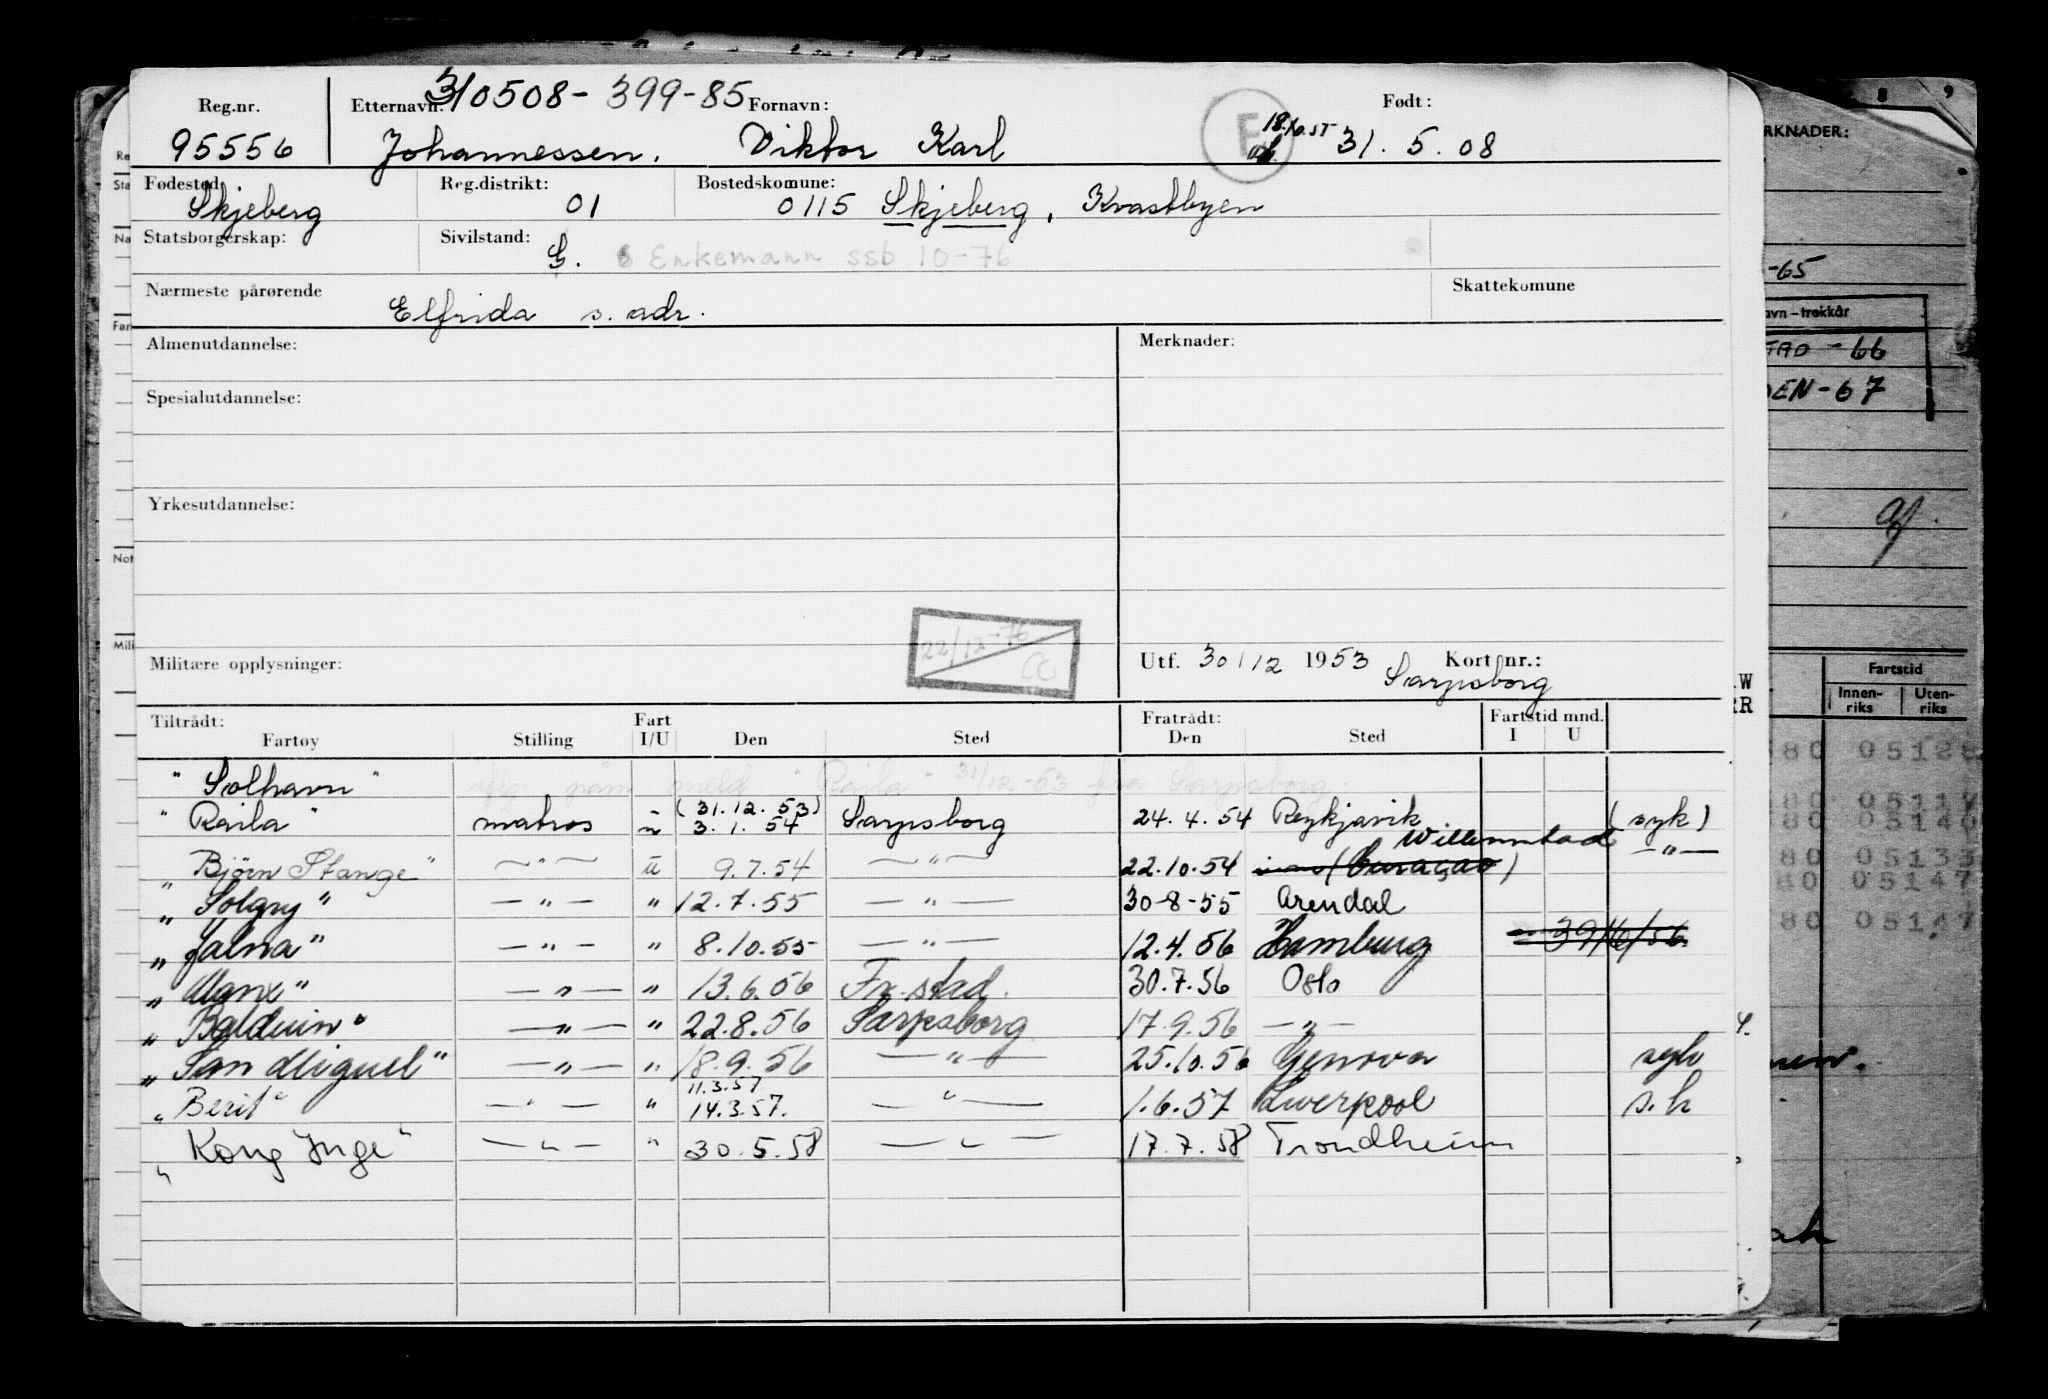 310508-399-85
Reg.nr. Etternavn: Fornavn: Født:
95556 Johannessen, Viktor Karl 31.5.08
E
Fødested Reg.distrikt: Bostedskomune:
Skjeberg 01 0115 Skjeberg, Kvastbyen
Statsborgerskap: Sivilstand:
G. Enkemann ssb 10-76
Nærmeste pårørende Skattekomune
Elfrida s. adr.
Almenutdannelse: Merknader:
Spesialutdannelse:
Yrkesutdannelse:
22/12-76
Militære opplysninger: Utf. 30/12 1953 Kort nr.:
Sarpsborg
Tiltrådt: Fart Fratrådt: Fartstid mnd.
Fartøy Stilling I/U Den Sted Den Sted I U
"Solhavn" meld "Raila" 31/12-53 fra Sarpsborg.
"Raila" matros u (31.12.53) 3.1.54 Sarpsborg 24.4.54 Reykjavik (syk)
"Bjørn Stange" —"— u 9.7.54 —"— 22.10.54 (Curaçao) Willemstad —"—
"Solgry" —"— " 12.7.55 —"— 30-8-55 Arendal
"Jalna" —"— " 8.10.55 —"— 12.4.56 Hamburg
"Manx" —"— " 13.6.56 Fr.stad. 30.7.56 Oslo
"Balduin" —"— " 22.8.56 Sarpsborg 17.9.56 —"—
"San Miguel" —"— " 18.9.56 —"— 25.10.56 Genova syk
11.3.57
"Berit" —"— " 14.3.57. —"— 1.6.57 Liverpool s.k
"Kong Inge" —"— " 30.5.58 —"— 17.7.58 Trondheim
8 9
RKNADER:
-65
avn-trekkår
-66
DEN-67
Fartstid
Innen-riks Uten-riks
80 05147